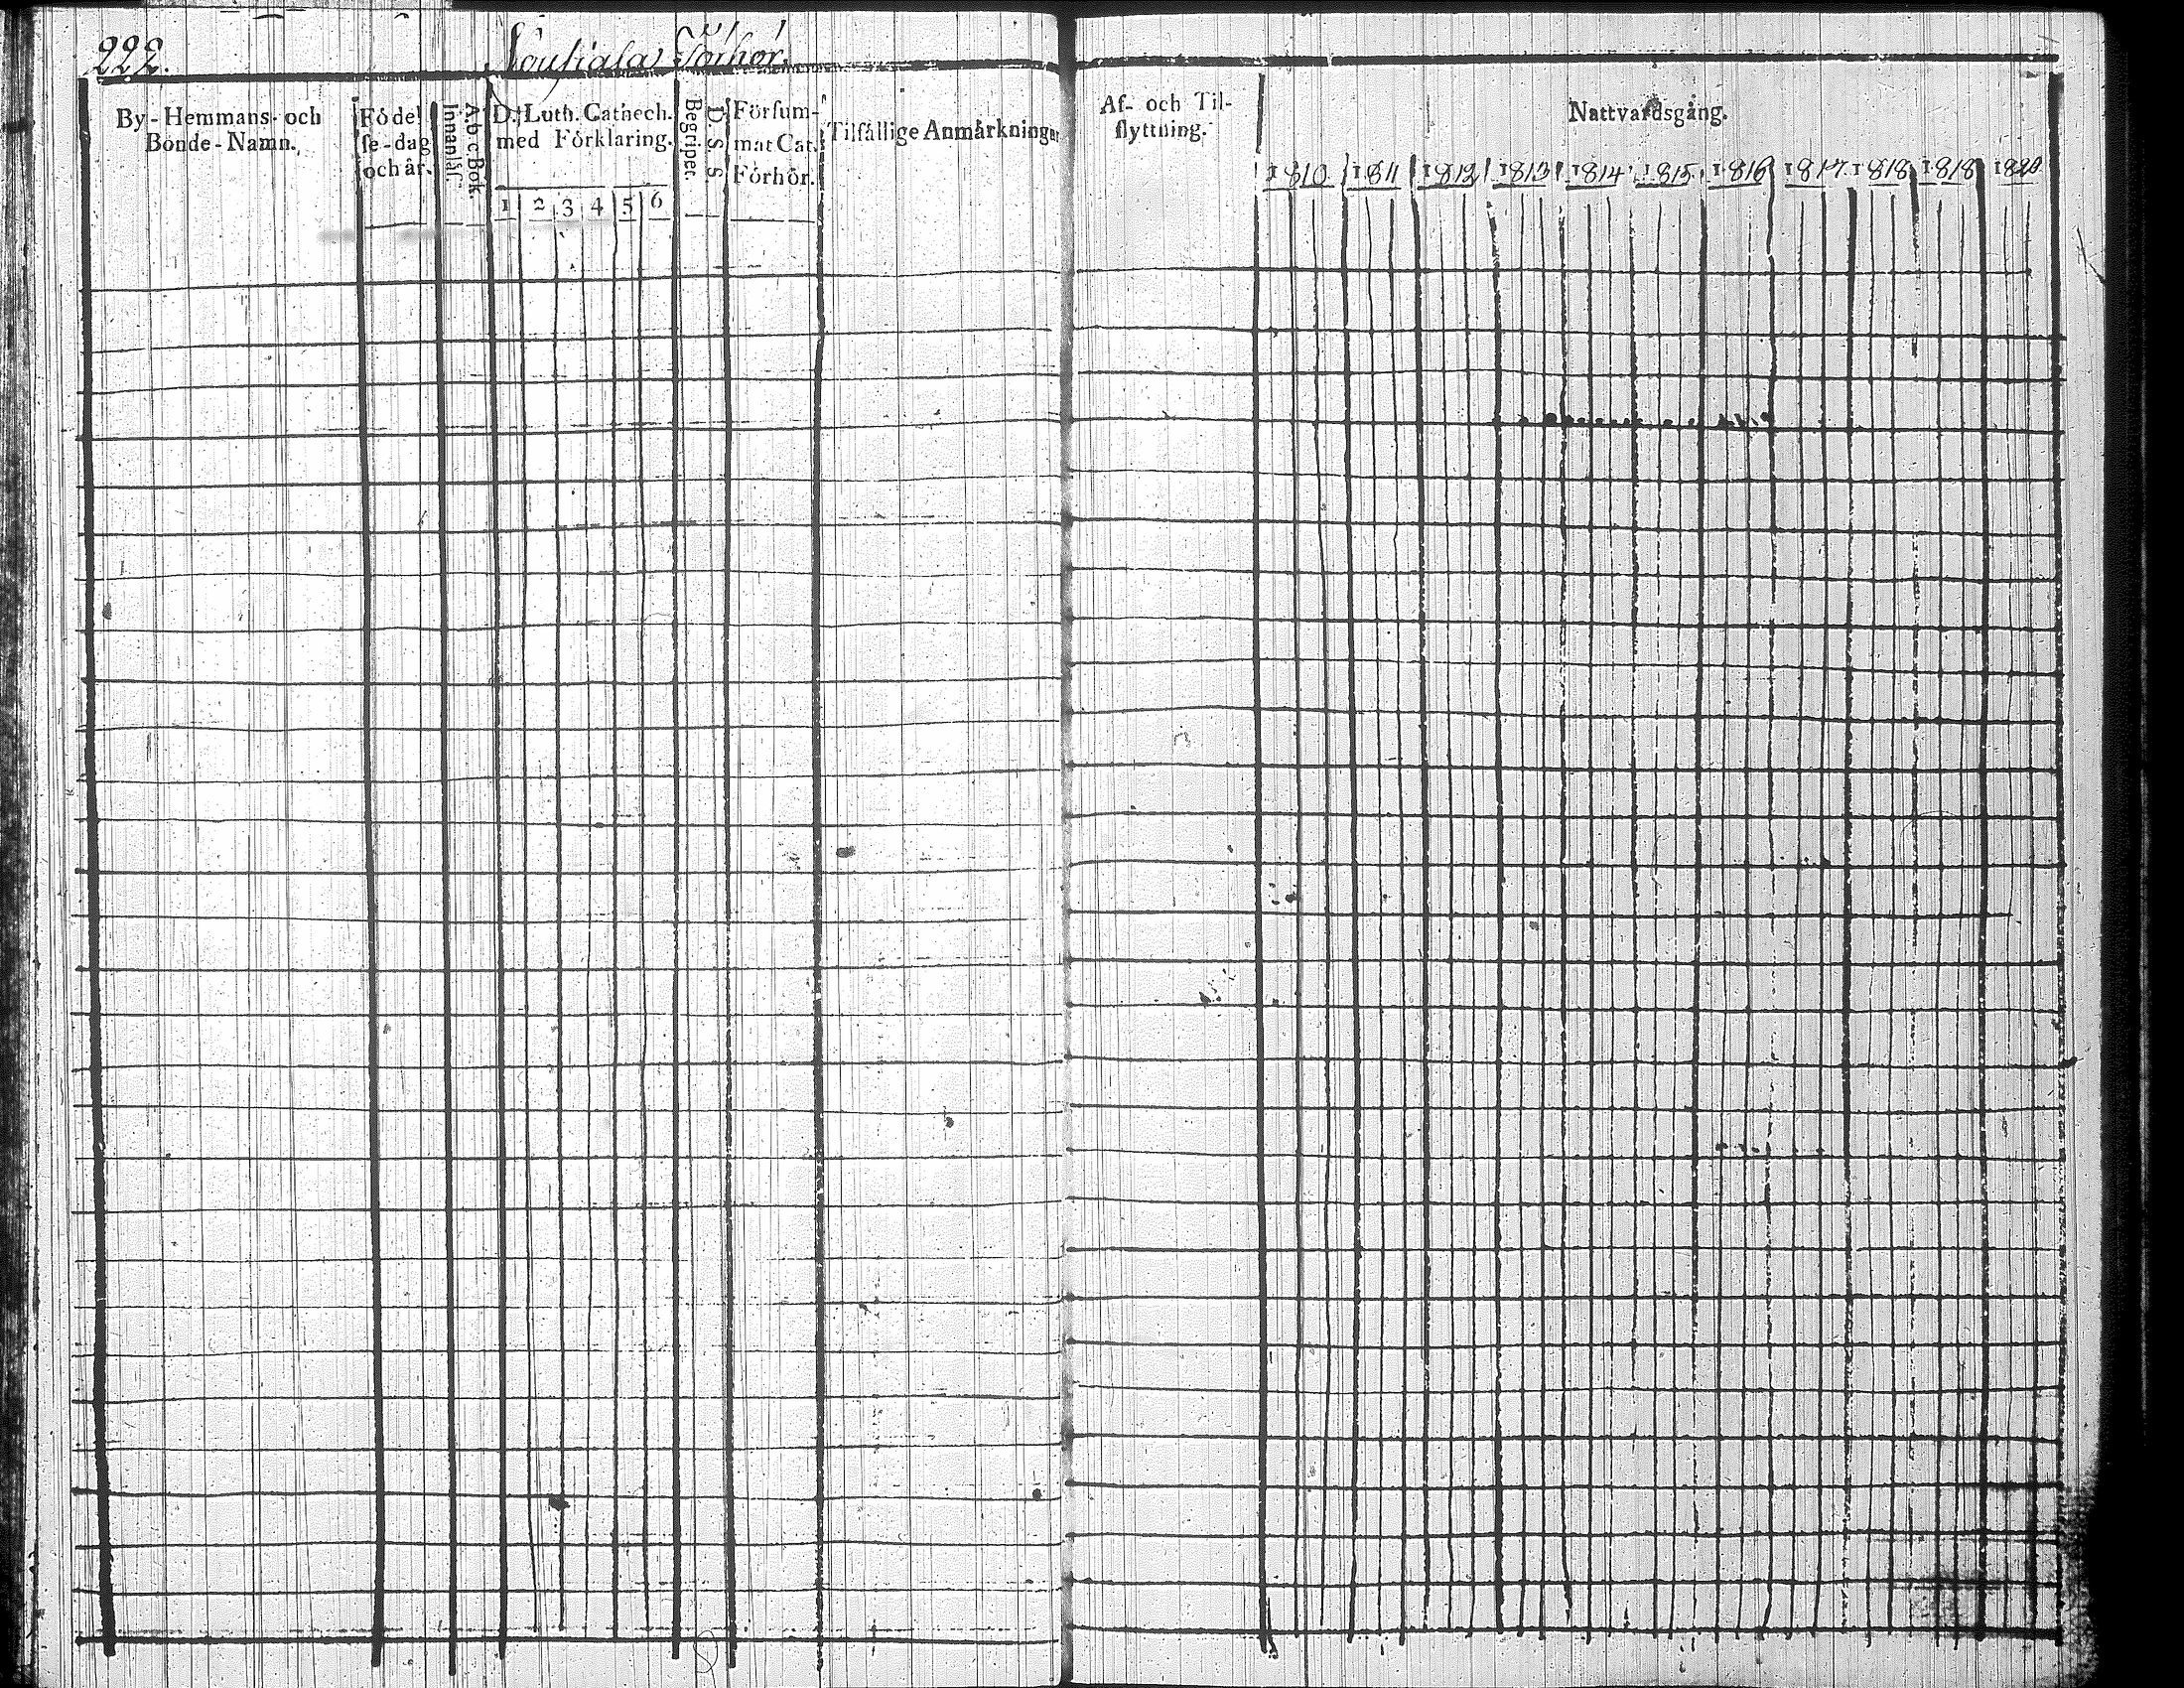 222. Förhör
By-Hemmans- och
Bonde-Namn.
Födel
se-dag
och år.
A b c Bok.
Innanläs.
D. Luth. Cathech.
med Förklaring.
1 2 3 4 5 6
D. S. S.
Begriper.
Försum-
mat Cat.
Förhör.
Tilfällige Anmärkningar
Af- och Til-
flyttning.
Nattvardsgång.
1810 1811 1812 1813 1814 1815 1816 1817. 1818 1818 1820